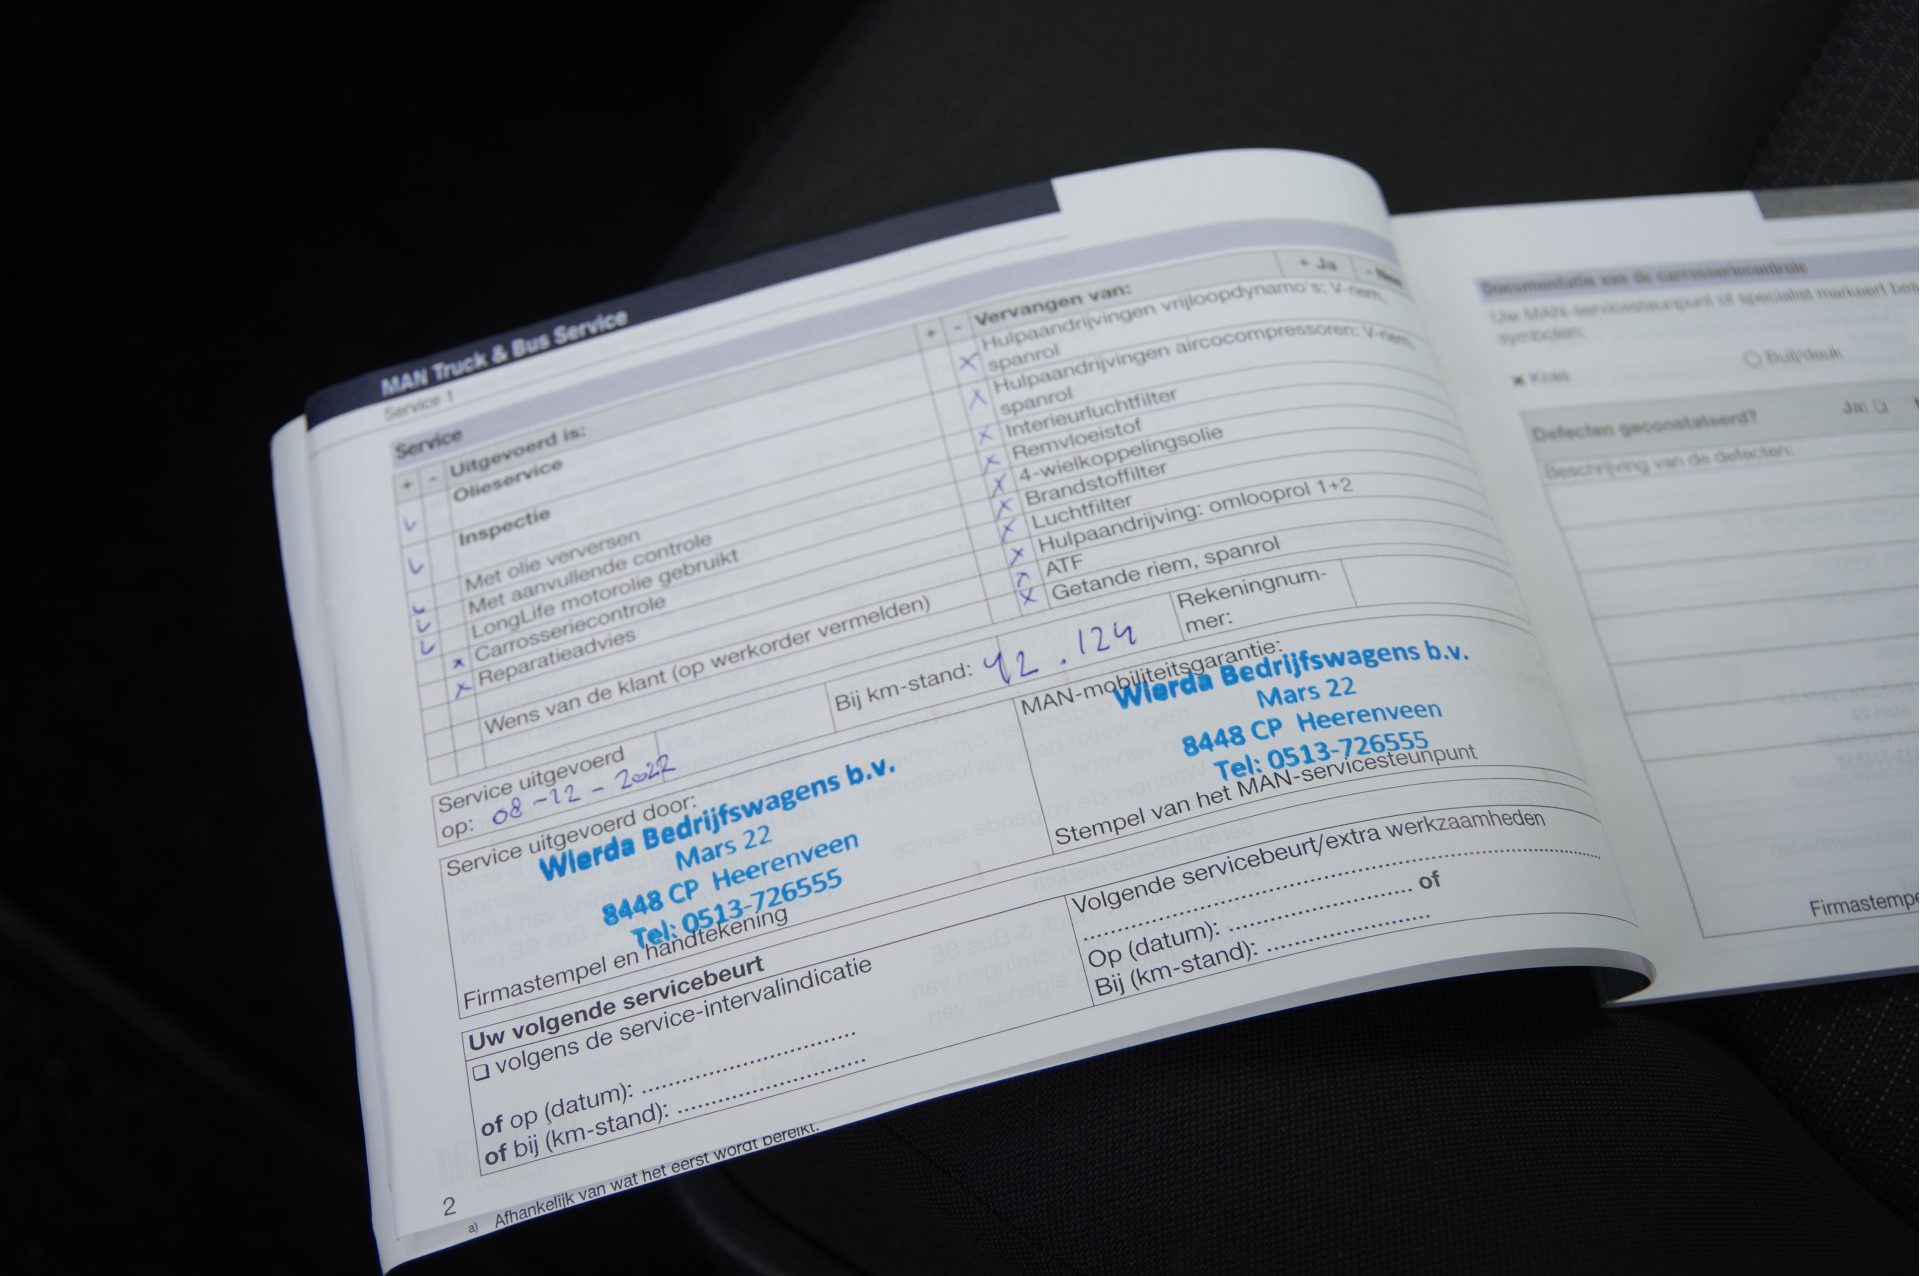 MAN Truck & Bus Service
Service 1
Service
+ - Uitgevoerd is:
Olieservice
Inspectie
Met olie verversen
Met aanvullende controle
LongLife motorolie gebruikt
Carrosseriecontrole
Reparatieadvies
Wens van de klant (op werkorder vermelden)
+ Ja
+ - Vervangen van:
Hulpaandrijvingen vrijloopdynamo's: V-riem,
spanrol
Hulpaandrijvingen aircocompressoren: V-riem,
spanrol
Interieurluchtfilter
Remvloeistof
4-wielkoppelingsolie
Brandstoffilter
Luchtfilter
Hulpaandrijving: omlooprol 1+2
ATF
Getande riem, spanrol
Service uitgevoerd
op: 08-12-2022
Bij km-stand: 42.124
Rekeningnum-
mer:
Service uitgevoerd door:
Wierda Bedrijfswagens b.v.
Mars 22
8448 CP Heerenveen
Tel: 0513-726555
Firmastempel en handtekening
MAN-mobiliteitsgarantie:
Wierda Bedrijfswagens b.v.
Mars 22
8448 CP Heerenveen
Tel: 0513-726555
Stempel van het MAN-servicesteunpunt
Uw volgende servicebeurt
volgens de service-intervalindicatie
of op (datum):
of bij (km-stand):
Volgende servicebeurt/extra werkzaamheden
of
Op (datum):
Bij (km-stand):
2
a) Afhankelijk van wat het eerst wordt bereikt.
Documentatie van de carrosseriecontrole
Uw MAN-servicesteunpunt of specialist markeert
symbolen:
Kras
Buil/deuk
Defecten geconstateerd?
Ja:
Beschrijving van de defecten: